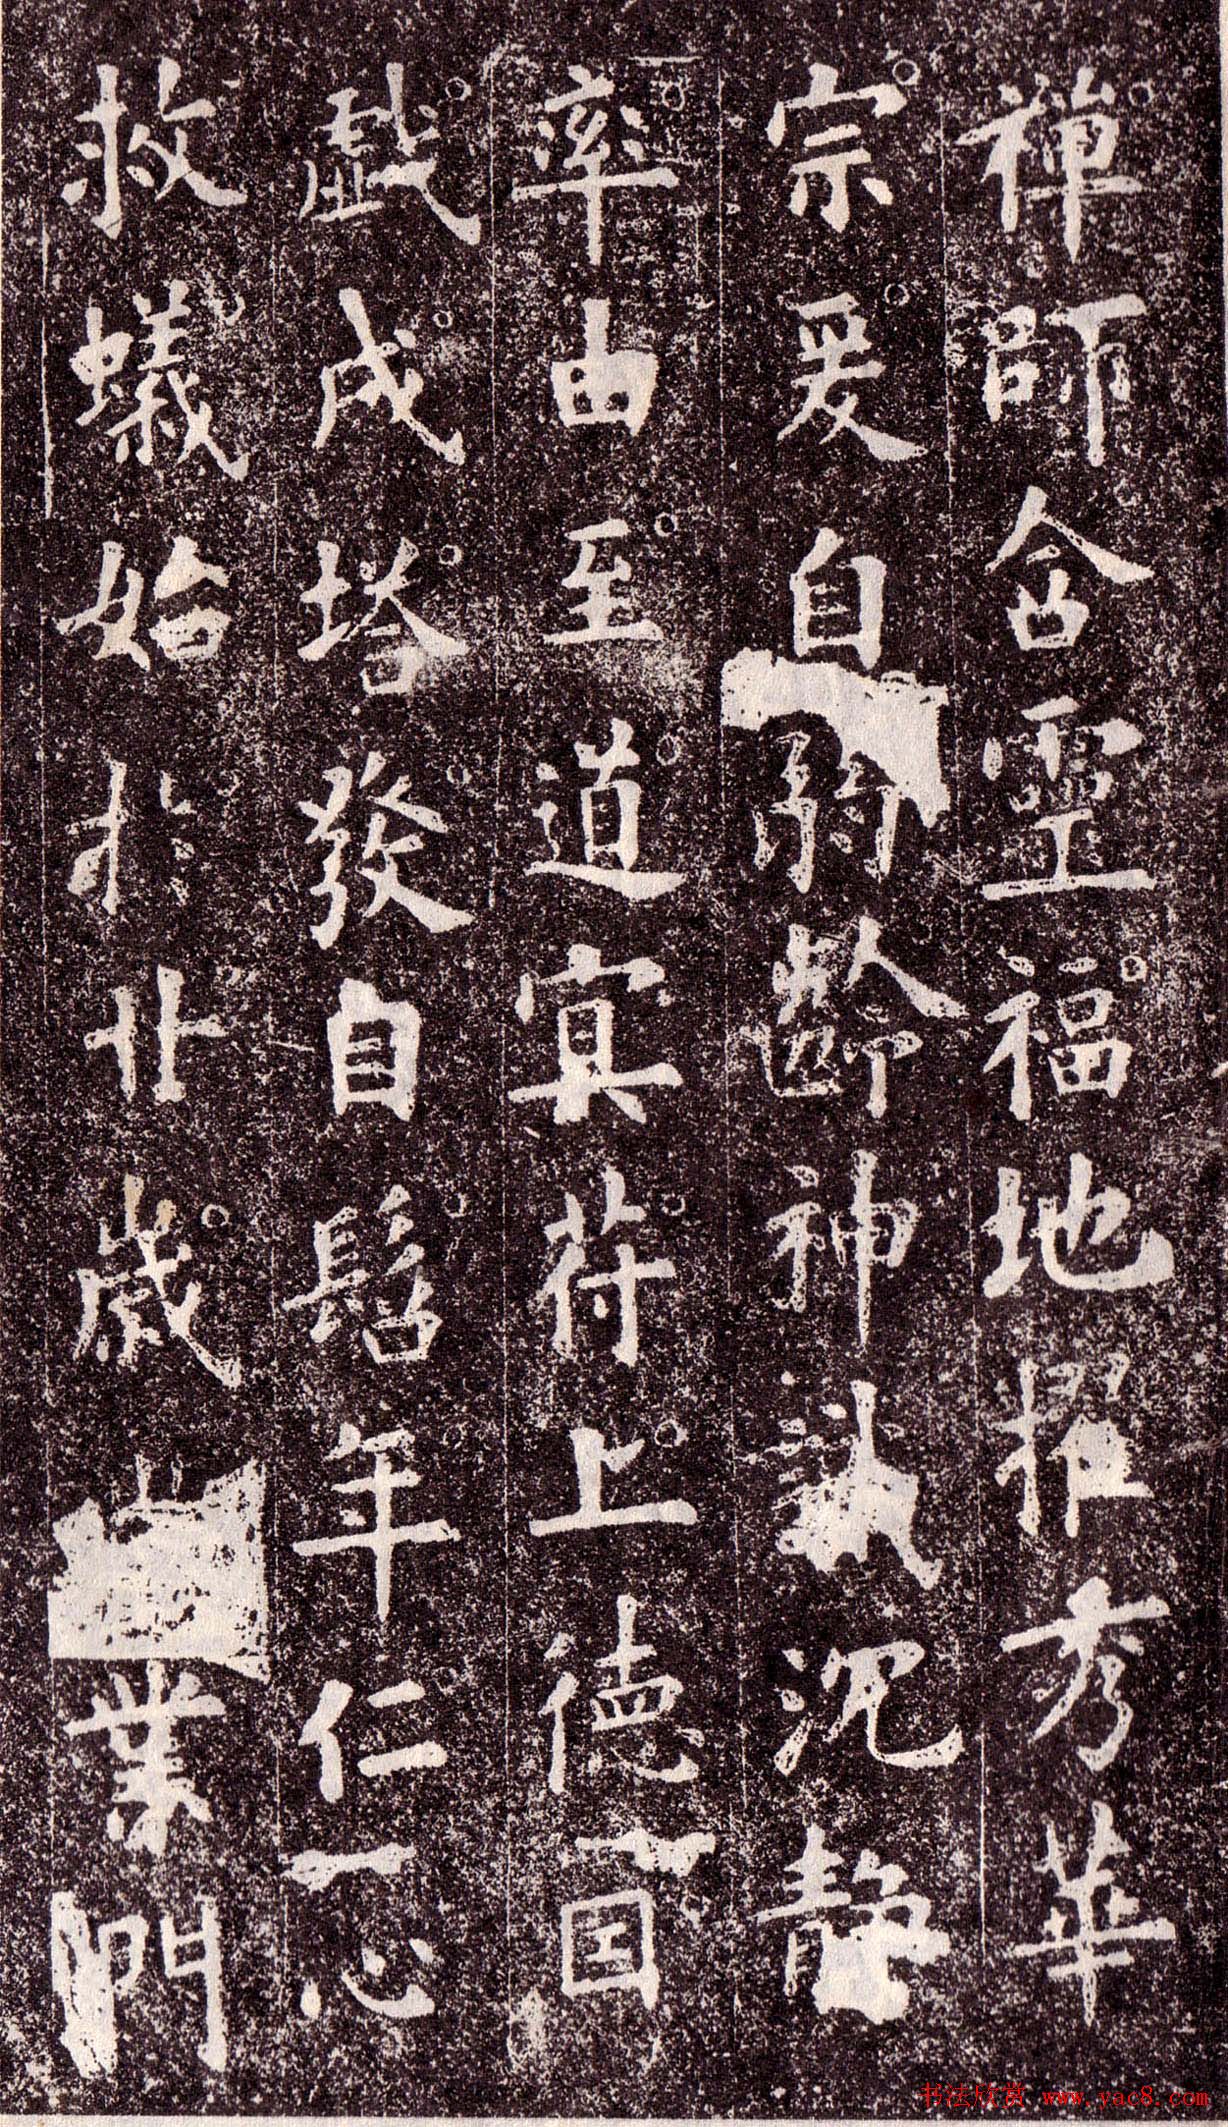 禅師含靈福地擢秀華
宗爰自弱齡神識沉静
率由至道冥符上德因
戲成塔發自髫年仁心
救蟻始於廿歲業門
书法欣赏 www.yac8.com